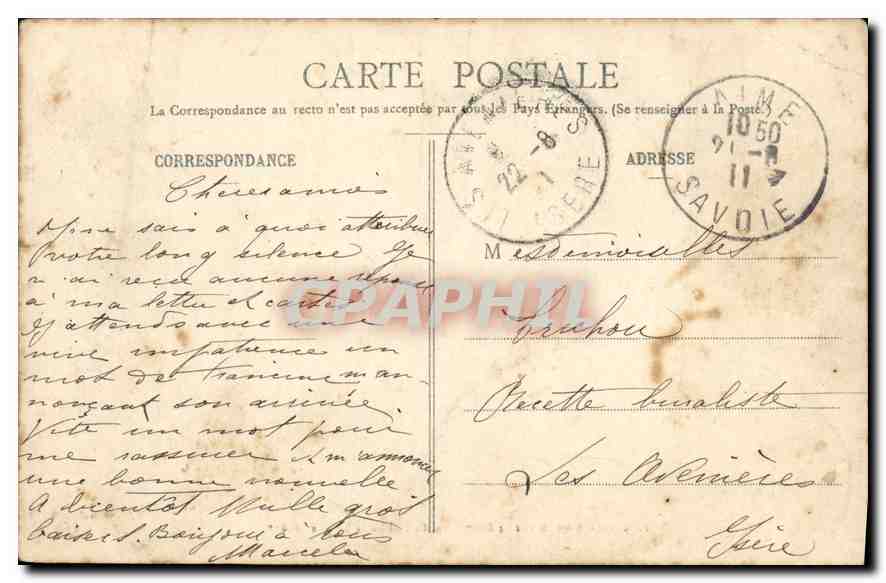 CARTE POSTALE
La Correspondance au recto n'est pas acceptée par tous les Pays Etrangers. (Se renseigner à la Poste)
CORRESPONDANCE
ADRESSE
LES AVENIERES
22 -8
11
ISERE
AIME
18 50
21 -8
11
SAVOIE
Cheres amies
Je ne sais à quoi attribuer
votre long silence Je
n'ai reçu aucune reponse
à ma lettre et cartes
J'attends avec une
vive impatience un
mot de Francine m'an-
nonçant son arrivée
Vite un mot pour
me rassurer et m'annoncer
une bonne nouvelle
A bientôt Mille gros
baisers. Bonjour à tous
Marcelle
Mesdemoiselles
Truchon
Recette buraliste
Les Avenières
Isère
CPAPHIL